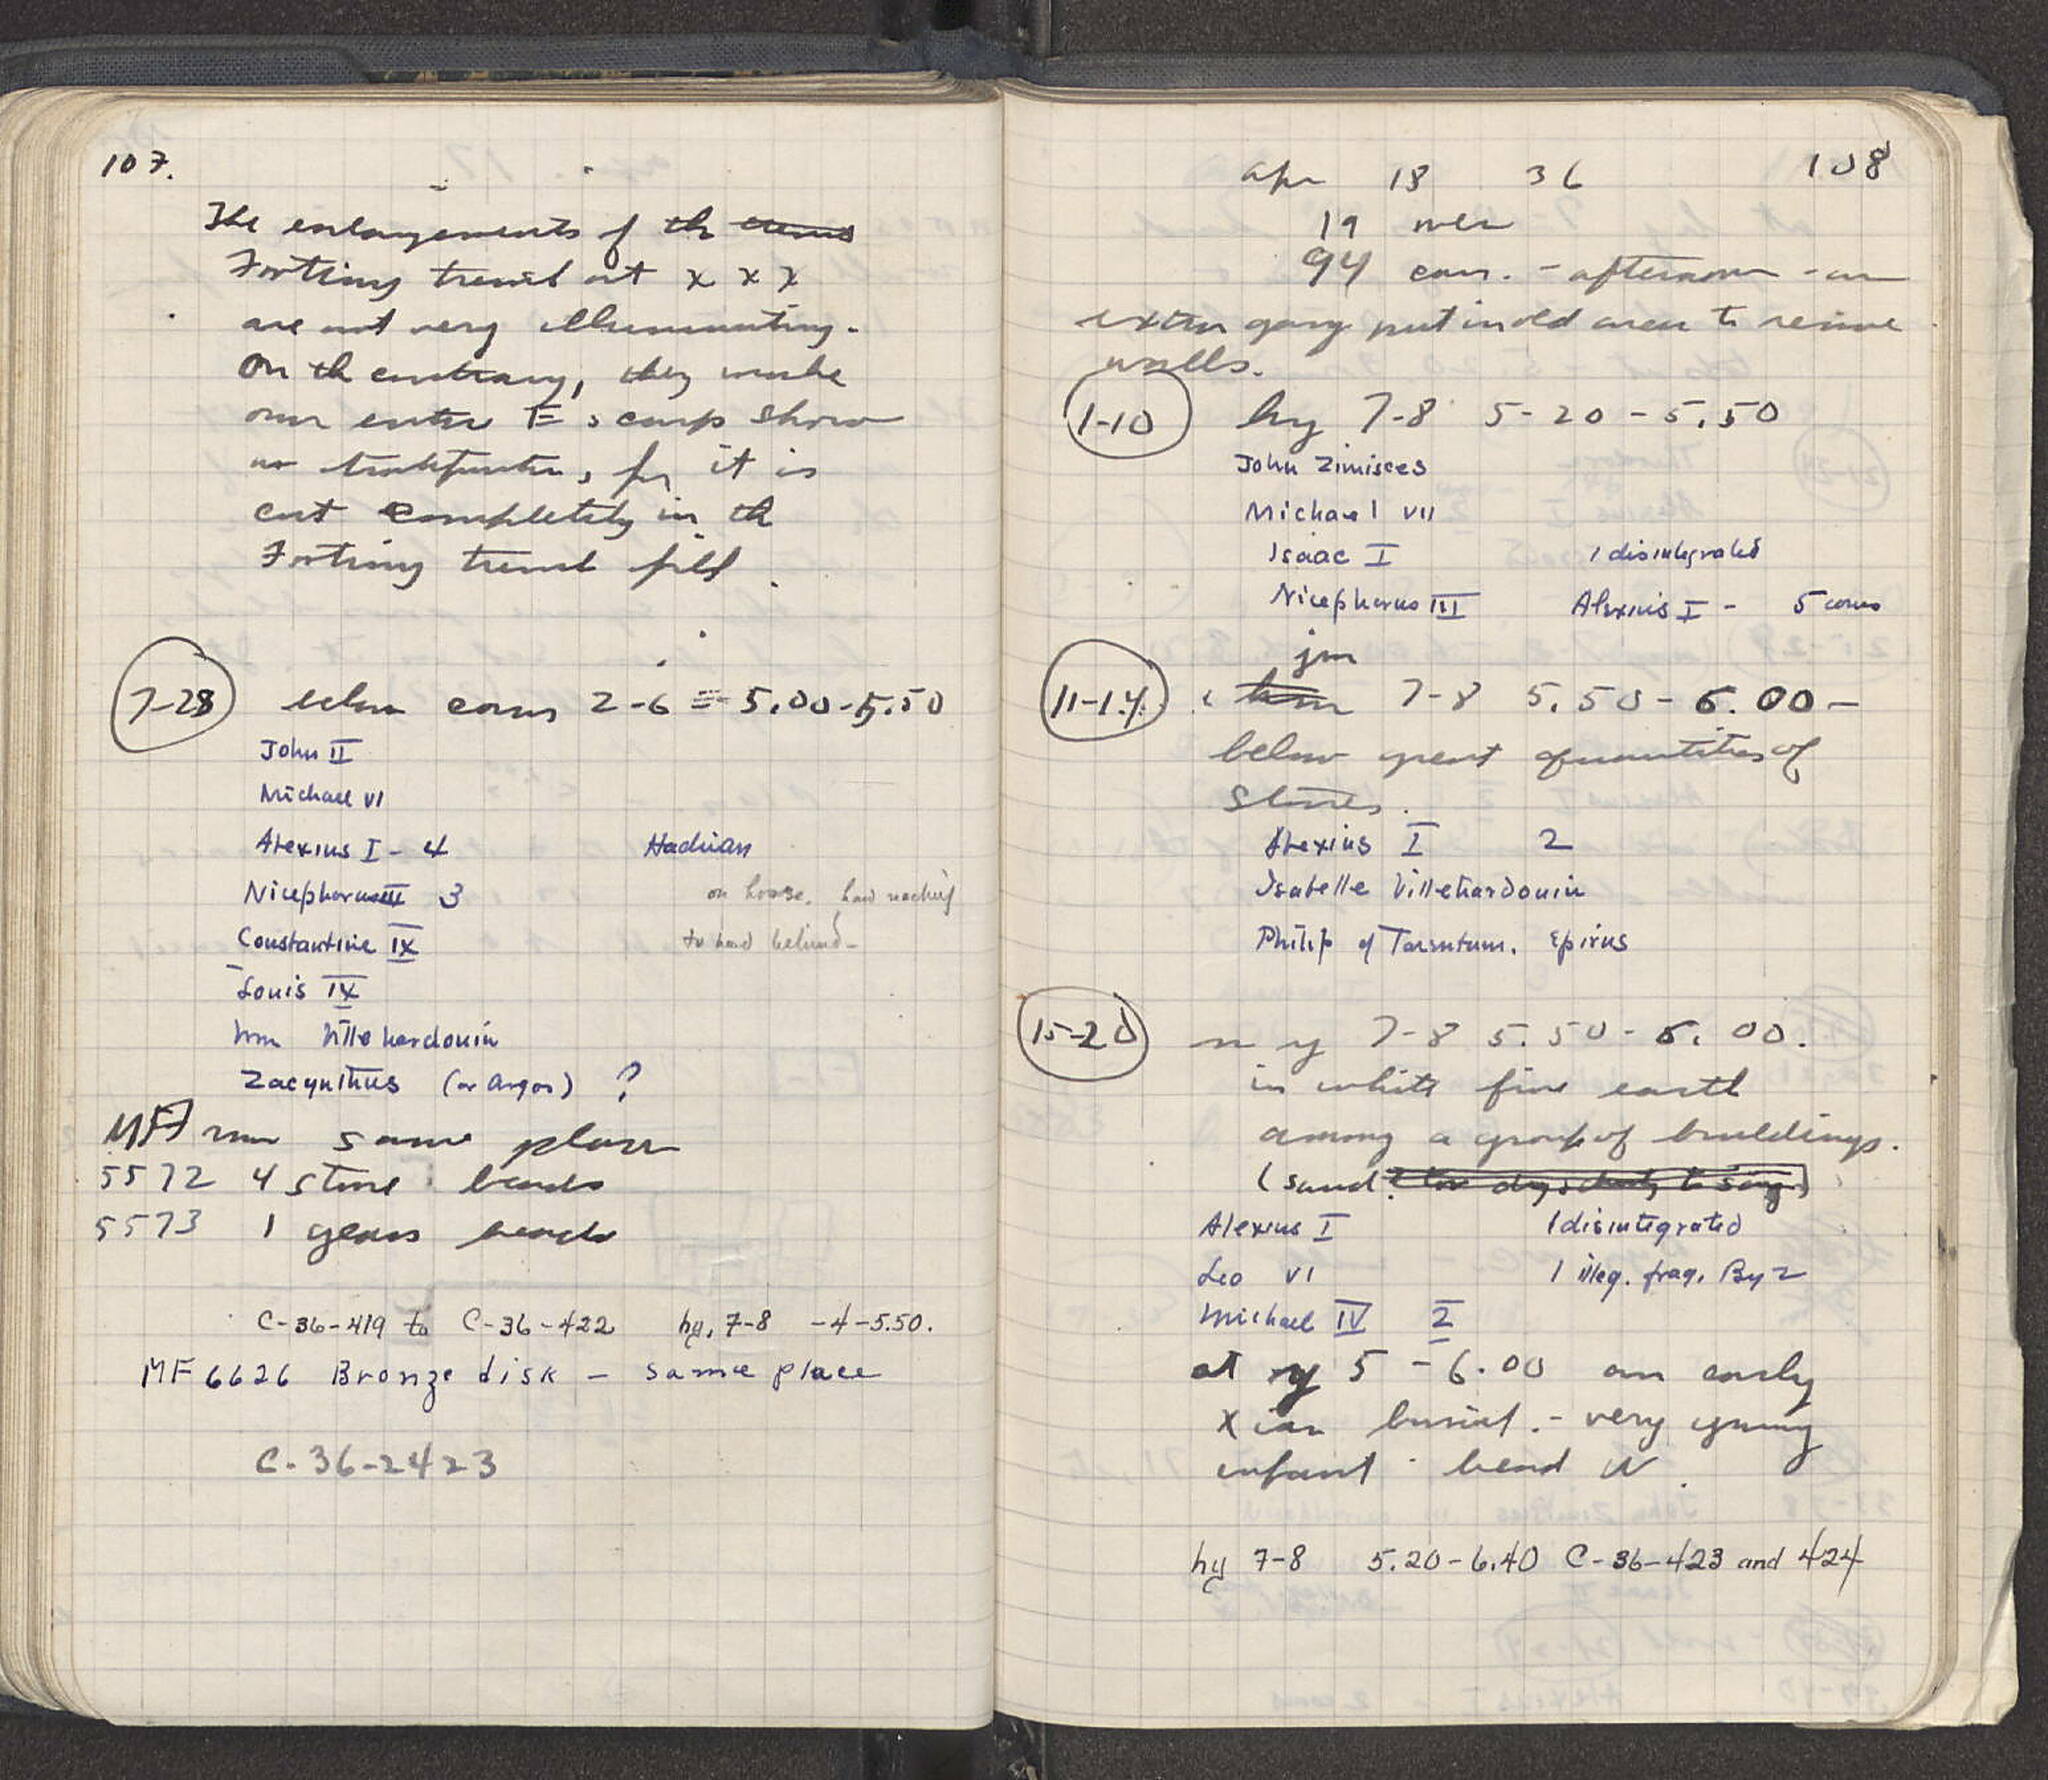 107.
The enlargements of th
Fortring trench at x x x
are not very illuminating.
On th contrary, they make
our entire E scarp show
no, for it is
cut completely in th
Fortring trench fill.
7-28 below coins 2-6 = 5.00-5.50
John II
Michael VI
Alexius I - 4 Hadrian
Nicephorus III 3 on horse, hand reaching
Constantine IX to hand behind -
Louis IX
Wm Villehardouin
Zacynthus (or Argos) ?
MF same place
5572 4 stone beads
5573 1 glass beads
C-36-419 to C-36-422 hy, 7-8 -4-5.50.
MF 6626 Bronze disk - same place
C-36-2423
108
Apr 18 36
19 men
94 cars. - afternoon - an
extra gang put in old area to remove
walls.
1-10 hy 7-8 5-20 - 5.50
John Zimisces
Michael VII
Isaac I 1 disintegrated
Nicephorus III Alexius I - 5 coins
jm
11-14 7-8 5.50 - 6.00 -
below great quantities of
stones.
Alexius I 2
Isabelle Villehardouin
Philip of Tarentum. Epirus
15-20 m y 7-8 5.50 - 6.00.
in white fine earth
among a group of buildings.
(sand?
Alexius I 1 disintegrated
Leo VI 1 illeg. frag. Byz
Michael IV 2
at y 5 - 6.00 an early
Xian burial. - very young
infant. head W.
hy 7-8 5.20-6.40 C-36-423 and 424